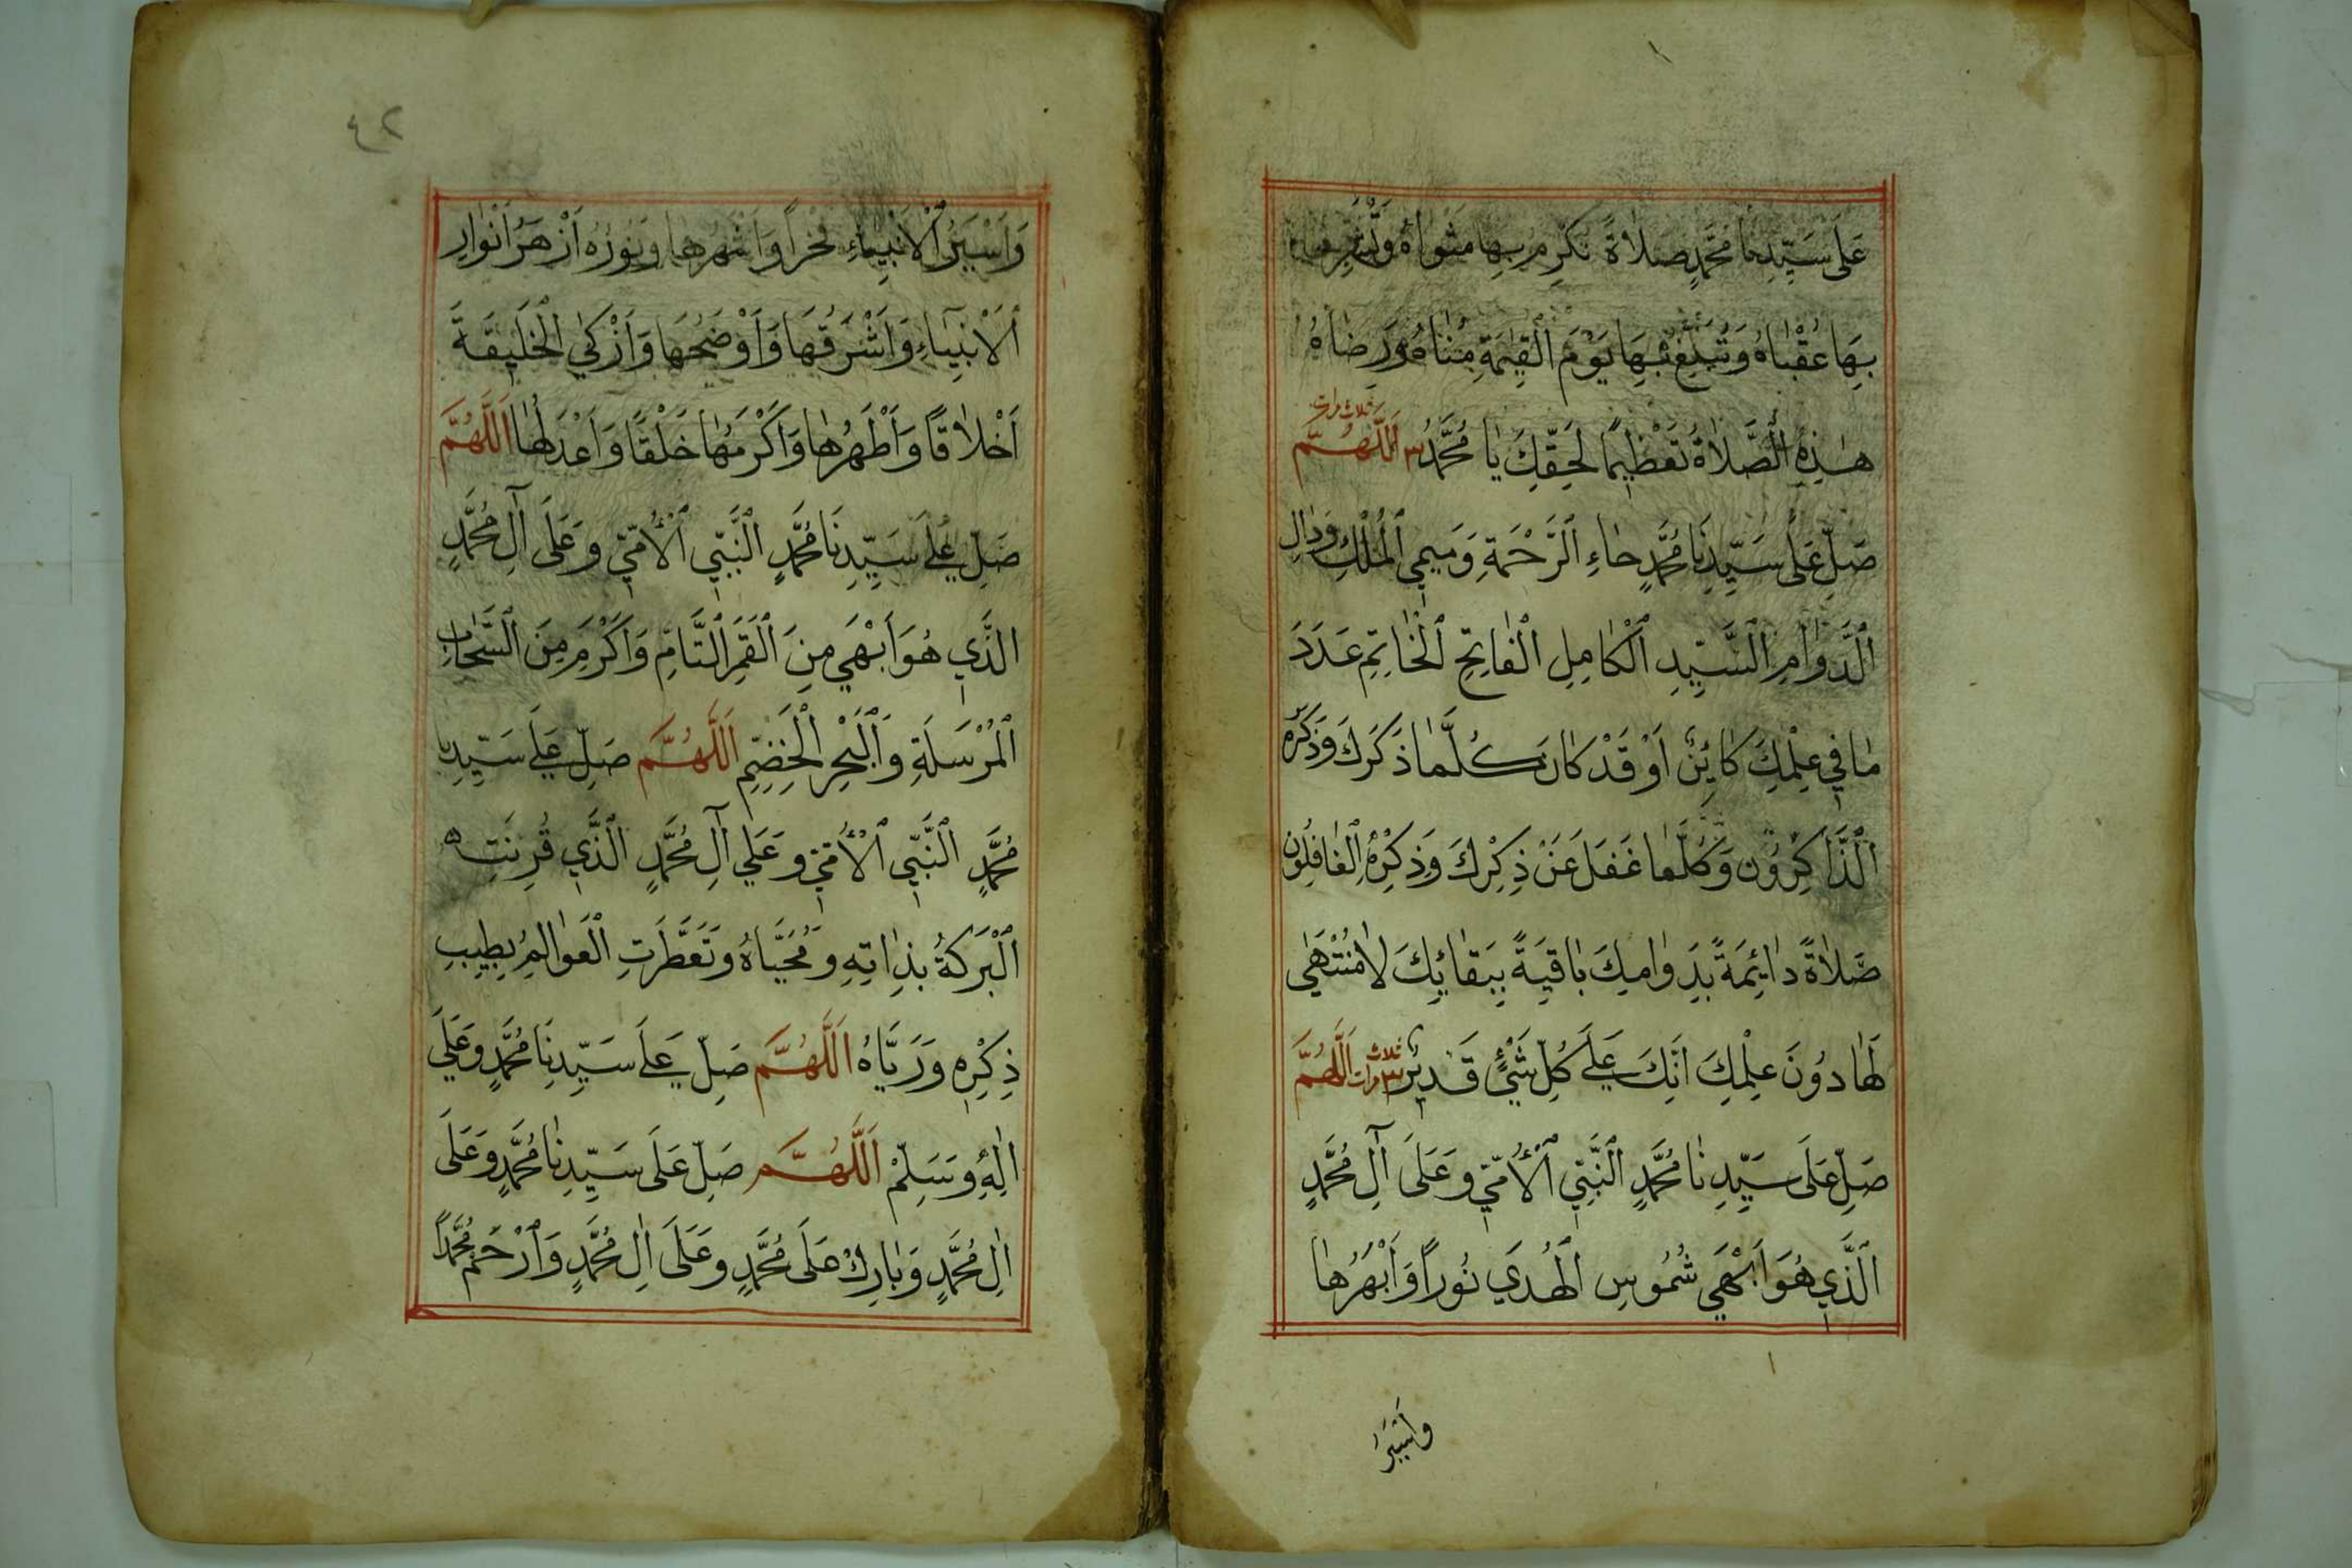 عَلَى سَيِّدِنَا مُحَمَّدٍ صَلَاةً تُكْرِمُ بِهَا مَثْوَاهُ وَتُشَرِّفُ
بِهَا عُقْبَاهُ وَتُبَلِّغُ بِهَا يَوْمَ الْقِيٰمَةِ مُنَاهُ وَرِضَاهُ
هٰذِهِ الصَّلَاةُ تَعْظِيمًا لِحَقِّكَ يَا مُحَمَّدُ ٣ ثلاث مرات اَللّٰهُمَّ
صَلِّ عَلَى سَيِّدِنَا مُحَمَّدٍ حَاءِ الرَّحْمَةِ وَمِيمَيِ الْمُلْكِ وَدَالِ
الدَّوَامِ السَّيِّدِ الْكَامِلِ الْفَاتِحِ الْخَاتِمِ عَدَدَ
مَا فِي عِلْمِكَ كَائِنٌ اَوْ قَدْ كَانَ كُلَّمَا ذَكَرَكَ وَذَكَرَهُ
الذَّاكِرُونَ وَكُلَّمَا غَفَلَ عَنْ ذِكْرِكَ وَذِكْرِهِ الْغَافِلُونَ
صَلَاةً دَائِمَةً بِدَوَامِكَ بَاقِيَةً بِبَقَائِكَ لَا مُنْتَهَى
لَهَا دُونَ عِلْمِكَ اَنَّكَ عَلَى كُلِّ شَيْءٍ قَدِيرٌ ٣ ثلاث مرات اَللّٰهُمَّ
صَلِّ عَلَى سَيِّدِنَا مُحَمَّدٍ النَّبِيِّ الْأُمِّيِّ وَعَلَى آلِ مُحَمَّدٍ
الَّذِي هُوَ اَبْهَى شُمُوسِ الْهُدَى نُورًا وَاَبْهَرُهَا
وَاَسْيَرُ
٤٢
وَاَسْيَرُ الْاَنْبِيَاءِ فَخْرًا وَاَشْهَرُهَا وَنُورُهُ اَزْهَرُ اَنْوَارِ
الْاَنْبِيَاءِ وَاَشْرَقُهَا وَاَوْضَحُهَا وَاَزْكَى الْخَلِيقَةِ
اَخْلَاقًا وَاَطْهَرُهَا وَاَكْرَمُهَا خَلْقًا وَاَعْدَلُهَا اَللّٰهُمَّ
صَلِّ عَلَى سَيِّدِنَا مُحَمَّدٍ النَّبِيِّ الْأُمِّيِّ وَعَلَى آلِ مُحَمَّدٍ
الَّذِي هُوَ اَبْهَى مِنَ الْقَمَرِ التَّامِّ وَاَكْرَمُ مِنَ السَّحَابِ
الْمُرْسَلَةِ وَالْبَحْرِ الْخِضَمِّ اَللّٰهُمَّ صَلِّ عَلَى سَيِّدِنَا
مُحَمَّدٍ النَّبِيِّ الْأُمِّيِّ وَعَلَى آلِ مُحَمَّدٍ الَّذِي قُرِنَتِ
الْبَرَكَةُ بِذَاتِهِ وَمُحَيَّاهُ وَتَعَطَّرَتِ الْعَوَالِمُ بِطِيبِ
ذِكْرِهِ وَرَيَّاهُ اَللّٰهُمَّ صَلِّ عَلَى سَيِّدِنَا مُحَمَّدٍ وَعَلَى
اٰلِهِ وَسَلِّمْ اَللّٰهُمَّ صَلِّ عَلَى سَيِّدِنَا مُحَمَّدٍ وَعَلَى
اٰلِ مُحَمَّدٍ وَبَارِكْ عَلَى مُحَمَّدٍ وَعَلَى اٰلِ مُحَمَّدٍ وَارْحَمْ مُحَمَّدًا